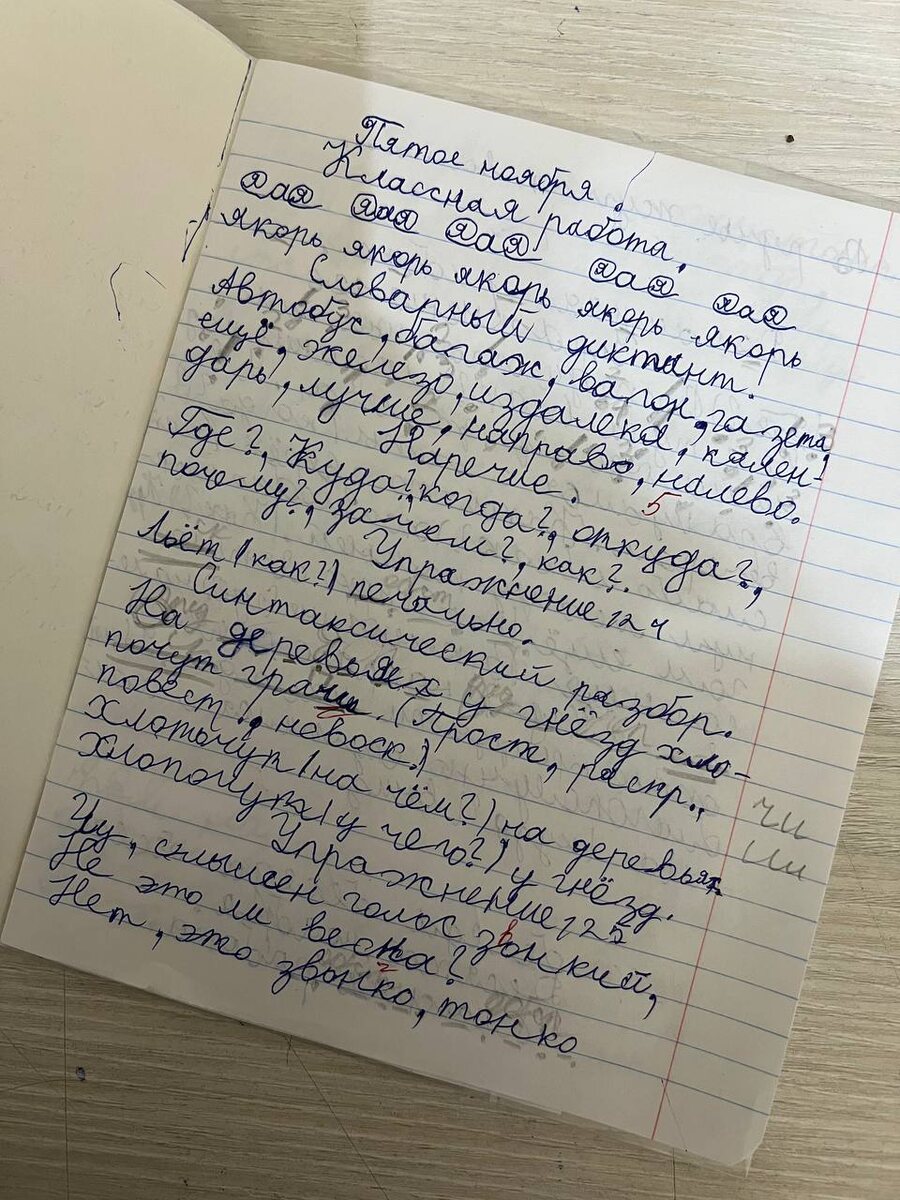 Пятое ноября.
Классная работа.
ЯаЯ ЯаЯ ЯаЯ ЯаЯ ЯаЯ
якорь якорь якорь якорь якорь
Словарный диктант.
Автобус, багаж, вагон, газета,
ещё, железо, издалека, кален-
дарь, лучше, направо, налево.
Наречие. 5
Где?, Куда?, когда?, откуда?,
почему?, зачем?, как?.
Упражнение 124
Льёт (как?) печально.
Синтаксический разбор.
На деревьях у гнёзд хло-
почут грачи. (Прост., распр.,
повест., невоск.)
Хлопочут (на чём?) на деревьях
хлопочут (у чего?) у гнёзд.
Упражнение 125
Чу, слышен голос звонкий,
Не это ли весна?
Нет, это звонко, тонко
чи
щи